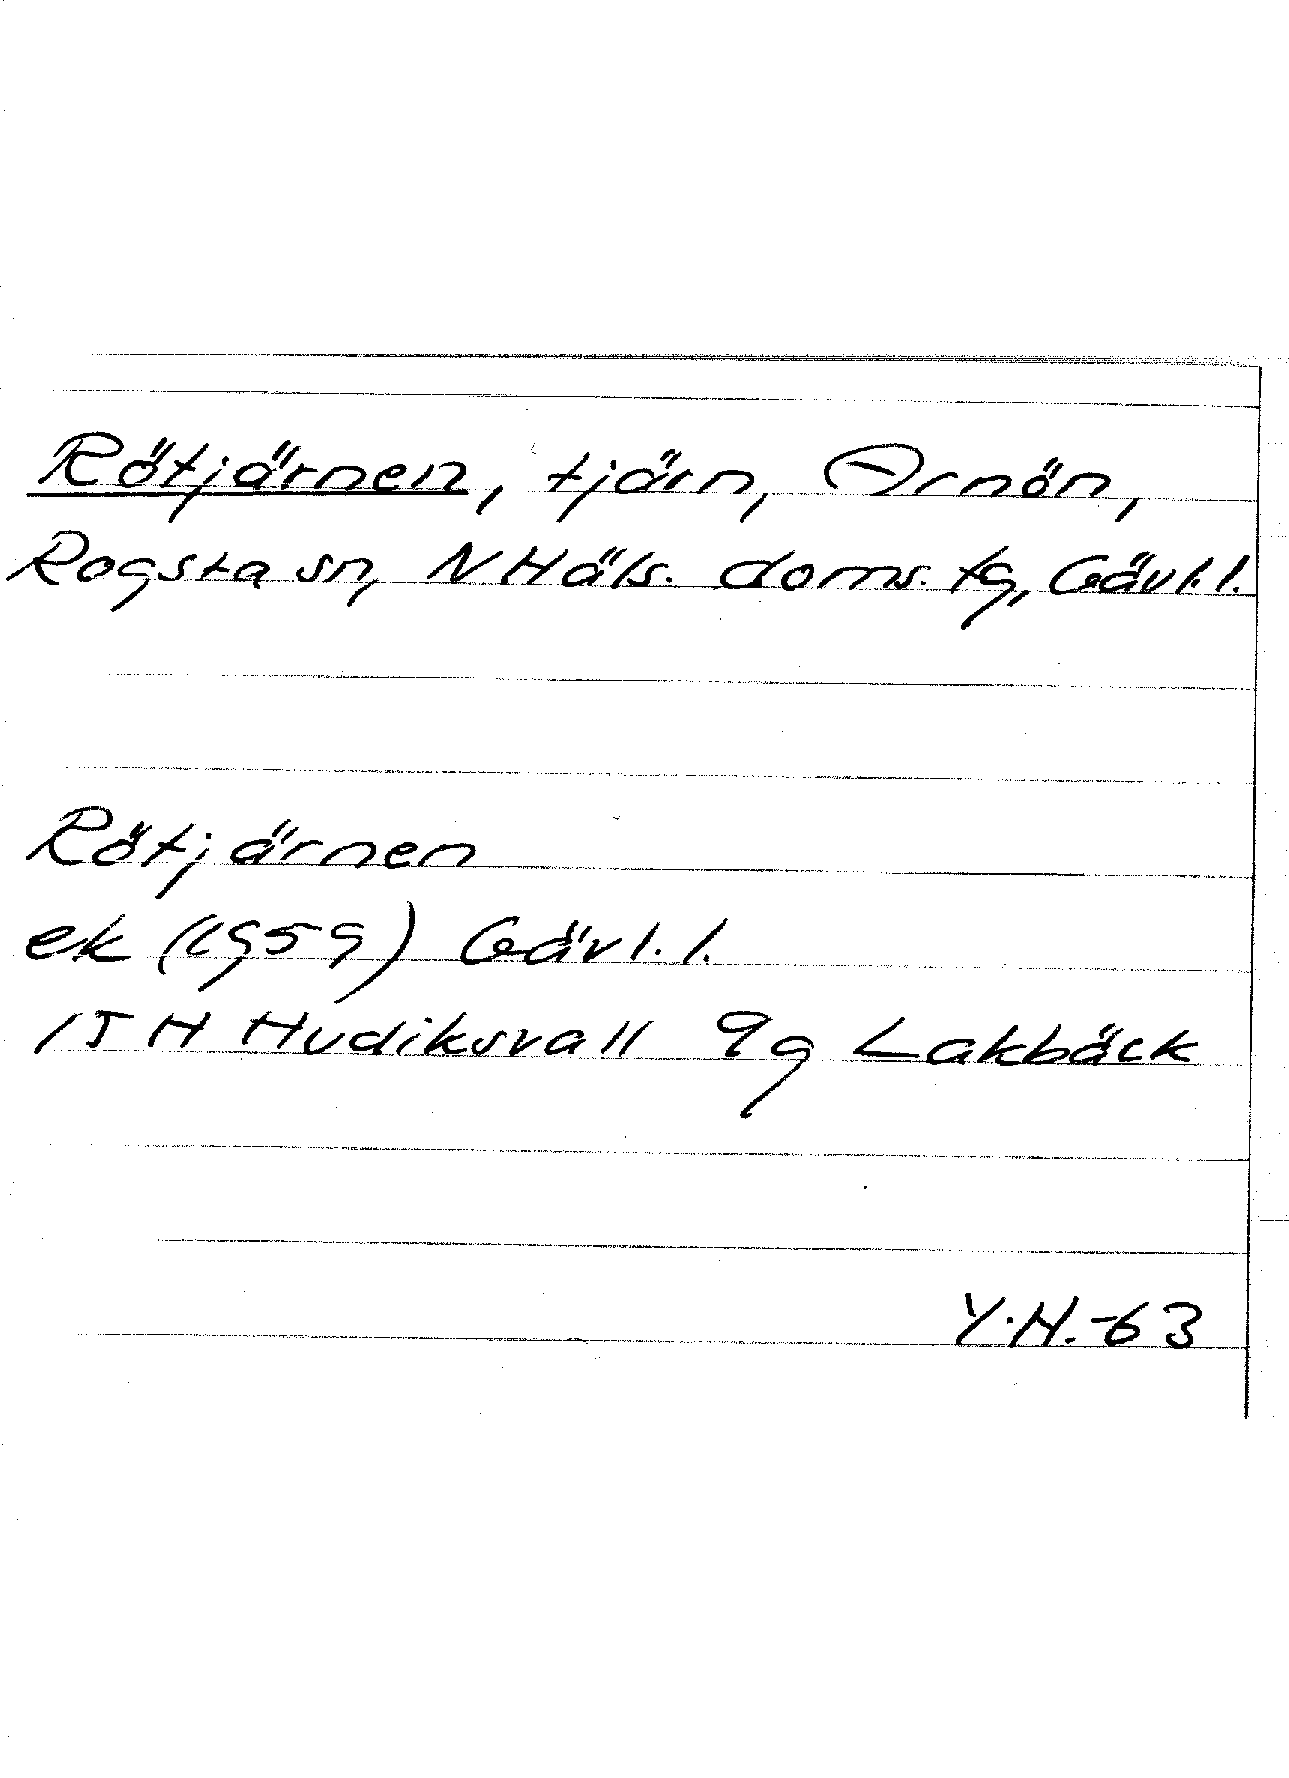 Rötjärnen, tjärn, Arnön,
Rogsta sn, N Häls. doms. tg, Gävl. l.
Rötjärnen
ek (1959) Gävl. l.
15 H Hudiksvall 9g Lakbäck
Y.H.-63